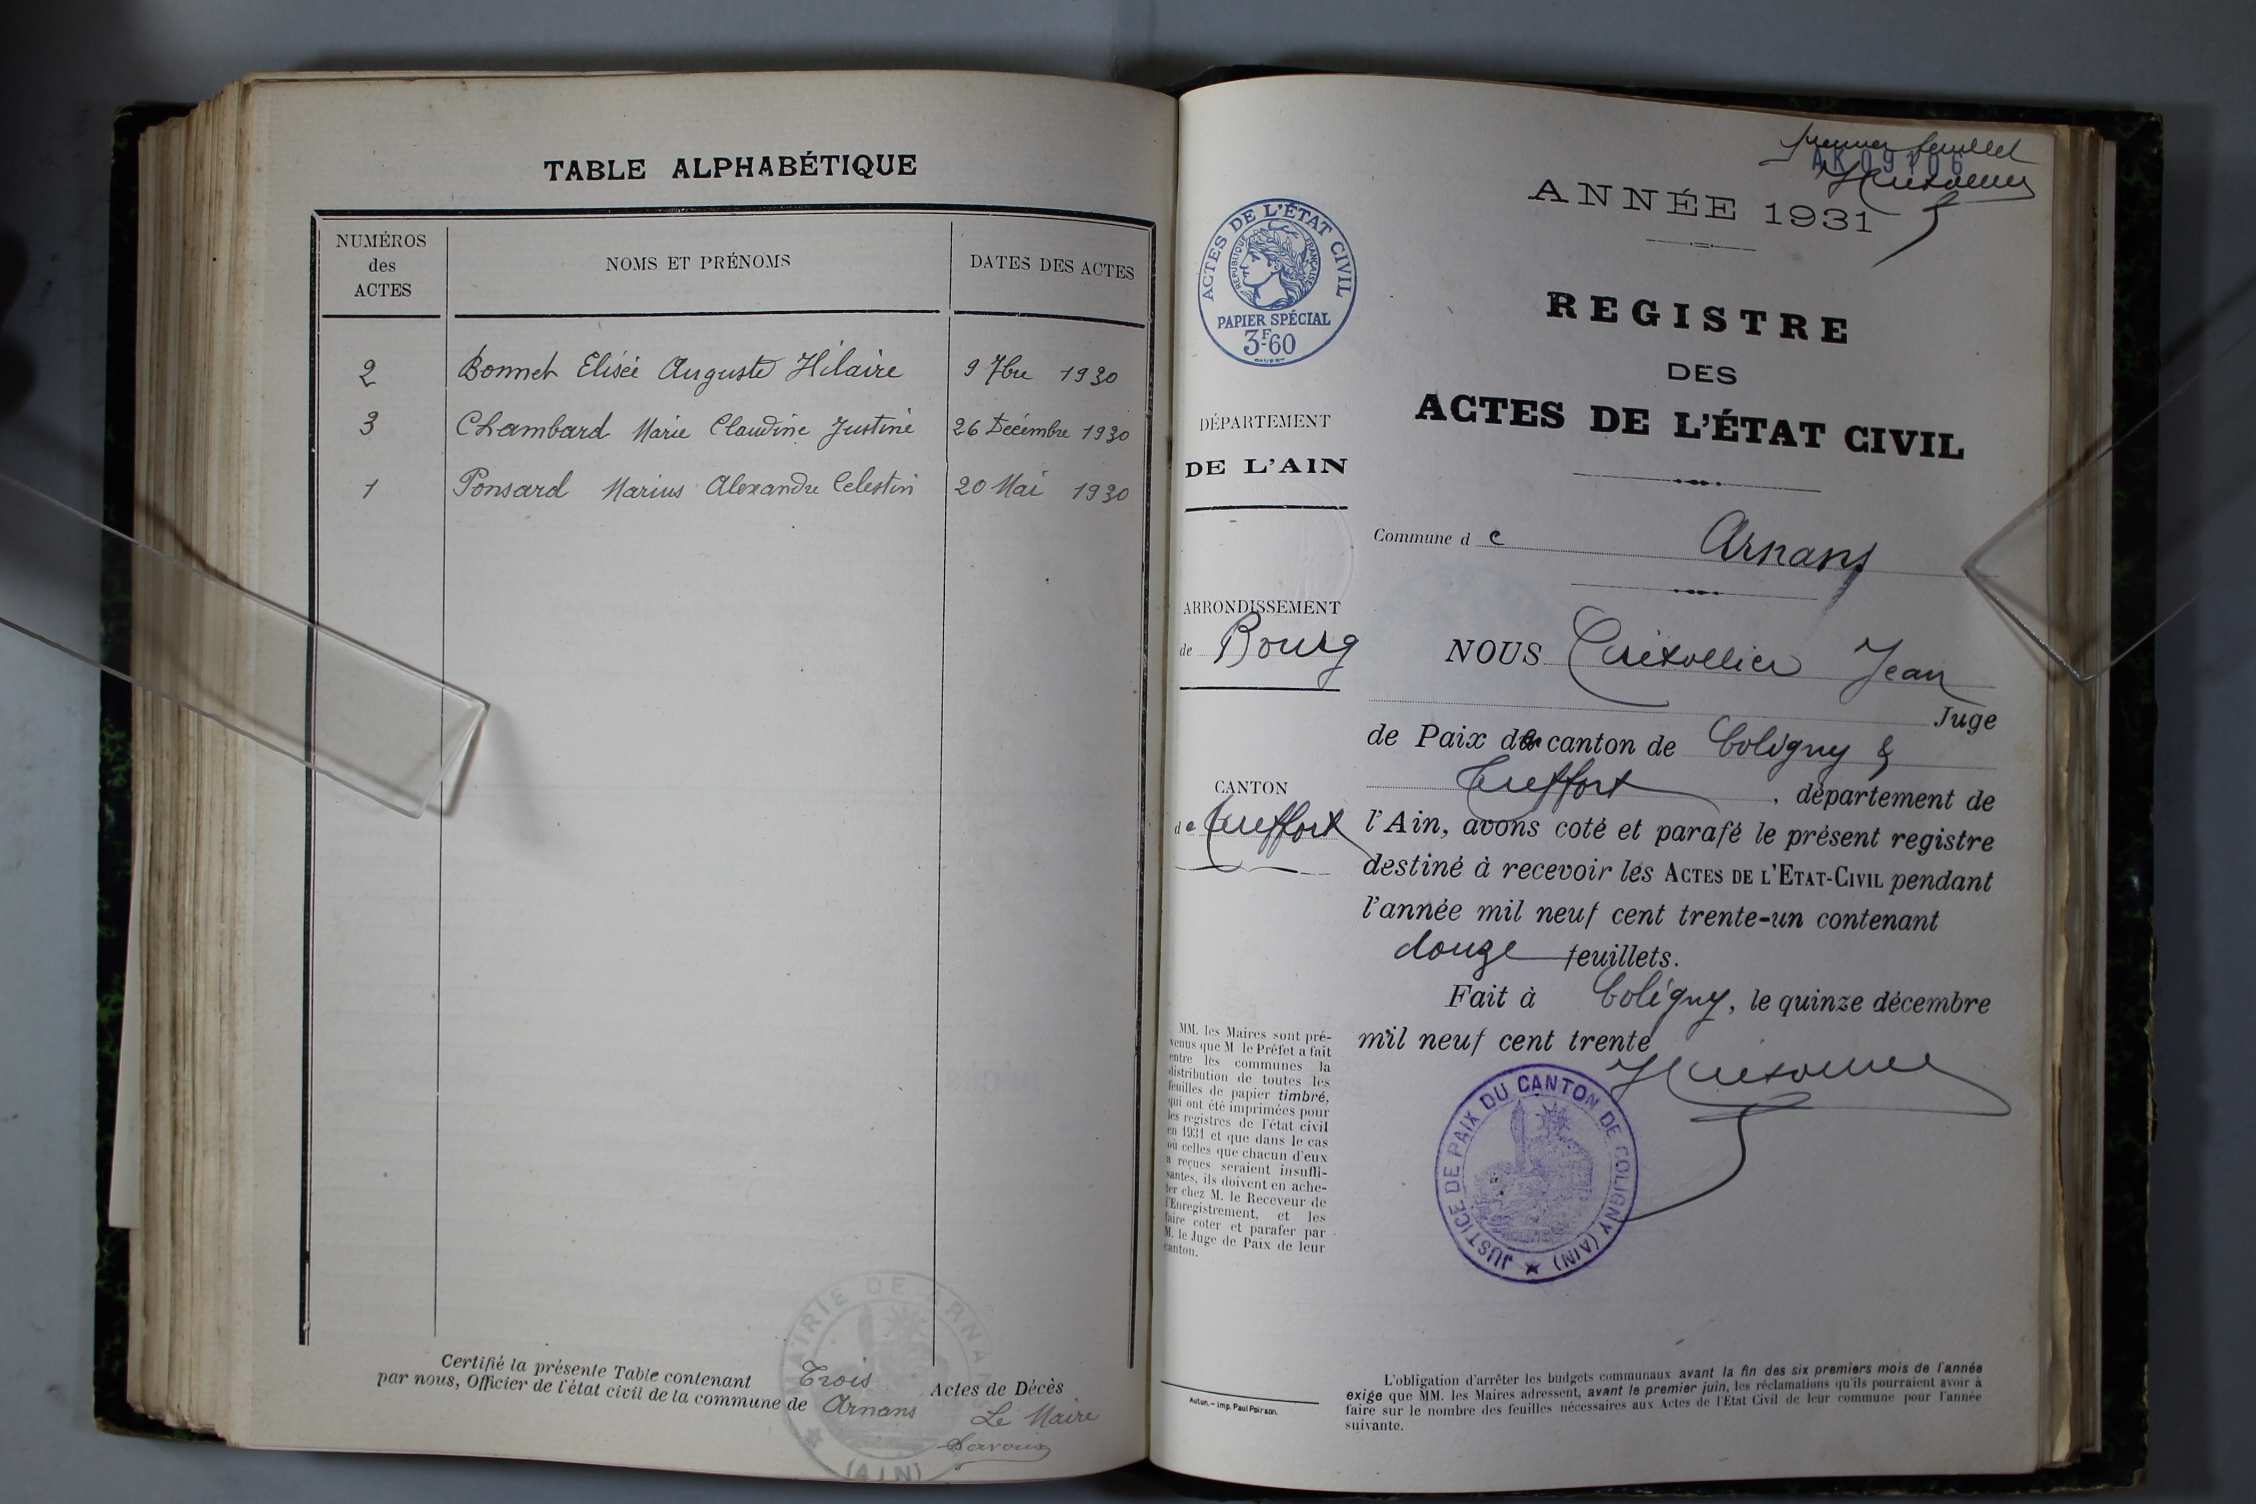 TABLE ALPHABÉTIQUE
NUMÉROS
des
ACTES
NOMS ET PRÉNOMS
DATES DES ACTES
2 Bonnet Elisée Auguste Hilaire 9 7bre 1930
3 Chambard Marie Claudine Justine 26 Décembre 1930
1 Ponsard Marius Alexandre Celestin 20 Mai 1930
Certifié la présente Table contenant Trois Actes de Décès
par nous, Officier de l'état civil de la commune de Arnans
Le Maire
MAIRIE DE ARNANS
(AIN)
premier feuillet
AK 09106
ANNÉE 1931
ACTES DE L'ÉTAT CIVIL
RÉPUBLIQUE FRANÇAISE
PAPIER SPÉCIAL
3F60
REGISTRE
DES
ACTES DE L'ÉTAT CIVIL
DÉPARTEMENT
DE L'AIN
Commune de Arnans
ARRONDISSEMENT
de Bourg
CANTON
de Treffort
NOUS Jean
Juge
de Paix de canton de Coligny &
Treffort, département de
l'Ain, avons coté et parafé le présent registre
destiné à recevoir les ACTES DE L'ETAT-CIVIL pendant
l'année mil neuf cent trente-un contenant
douze feuillets.
Fait à Coligny, le quinze décembre
mil neuf cent trente
JUSTICE DE PAIX DU CANTON DE COLIGNY (AIN)
MM. les Maires sont pré-
venus que M le Préfet a fait
entre les communes la
distribution de toutes les
feuilles de papier timbré,
qui ont été imprimées pour
les registres de l'état civil
en 1931 et que dans le cas
où celles que chacun d'eux
a reçues seraient insuffi-
santes, ils doivent en ache-
ter chez M. le Receveur de
l'Enregistrement, et les
faire coter et parafer par
M. le Juge de Paix de leur
canton.
Autun. – imp. Paul Poirson.
L'obligation d'arrêter les budgets communaux avant la fin des six premiers mois de l'année
exige que MM. les Maires adressent, avant le premier juin, les réclamations qu'ils pourraient avoir à
faire sur le nombre des feuilles nécessaires aux Actes de l'Etat Civil de leur commune pour l'année
suivante.